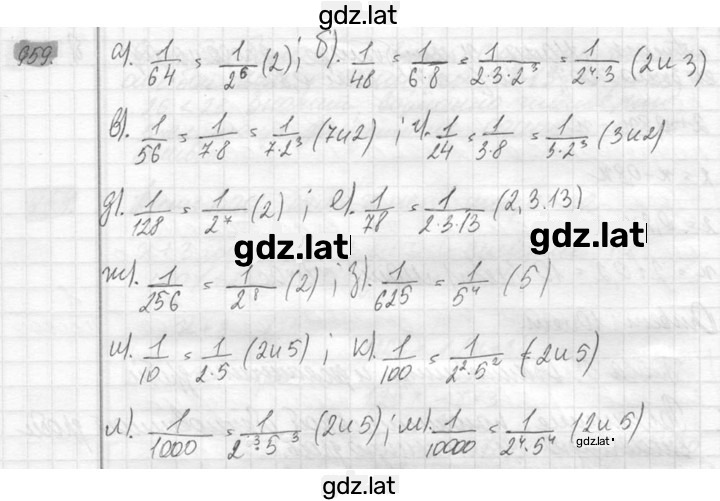 gdz.latl
959. а). 1/64 = 1/2⁶ (2); б). 1/48 = 1/6·8 = 1/2·3·2³ = 1/2⁴·3 (2 и 3)
в). 1/56 = 1/7·8 = 1/7·2³ (7 и 2); г). 1/24 = 1/3·8 = 1/3·2³ (3 и 2)
д). 1/128 = 1/2⁷ (2); е). 1/78 = 1/2·3·13 (2, 3. 13)
gdz.latl gdz.latl
ж). 1/256 = 1/2⁸ (2); з). 1/625 = 1/5⁴ (5)
и). 1/10 = 1/2·5 (2 и 5); к). 1/100 = 1/2²·5² (2 и 5)
л). 1/1000 = 1/2³·5³ (2 и 5); м). 1/10000 = 1/2⁴·5⁴ (2 и 5)
gdz.lat
gdz.lat